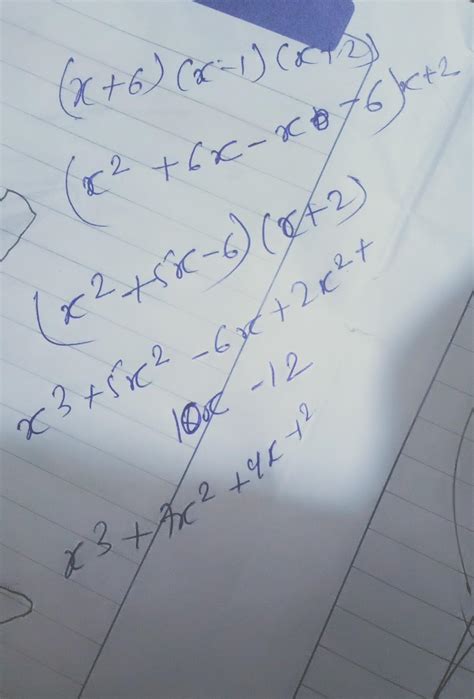 (x+6) (x-1) (x+2)
(x² + 6x - x - 6) x+2
(x² + 5x - 6) (x+2)
x³ + 5x² - 6x + 2x² +
10x - 12
x³ + 7x² + 4x - 12